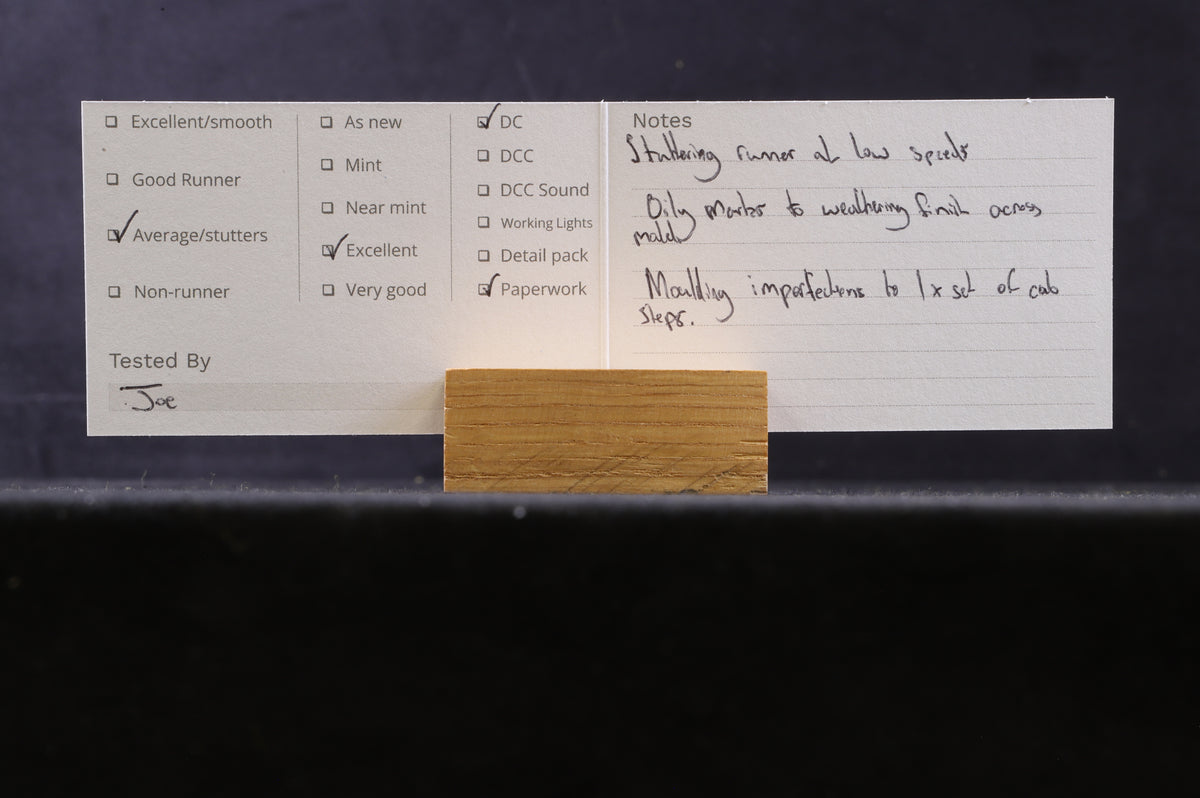 Excellent/smooth
Good Runner
Average/stutters
Non-runner
As new
Mint
Near mint
Excellent
Very good
DC
DCC
DCC Sound
Working Lights
Detail pack
Paperwork
Tested By
Joe
Notes
Stuttering runner at low speeds
Oily marks to weathering finish across
model
Moulding imperfections to 1x set of cab
steps.